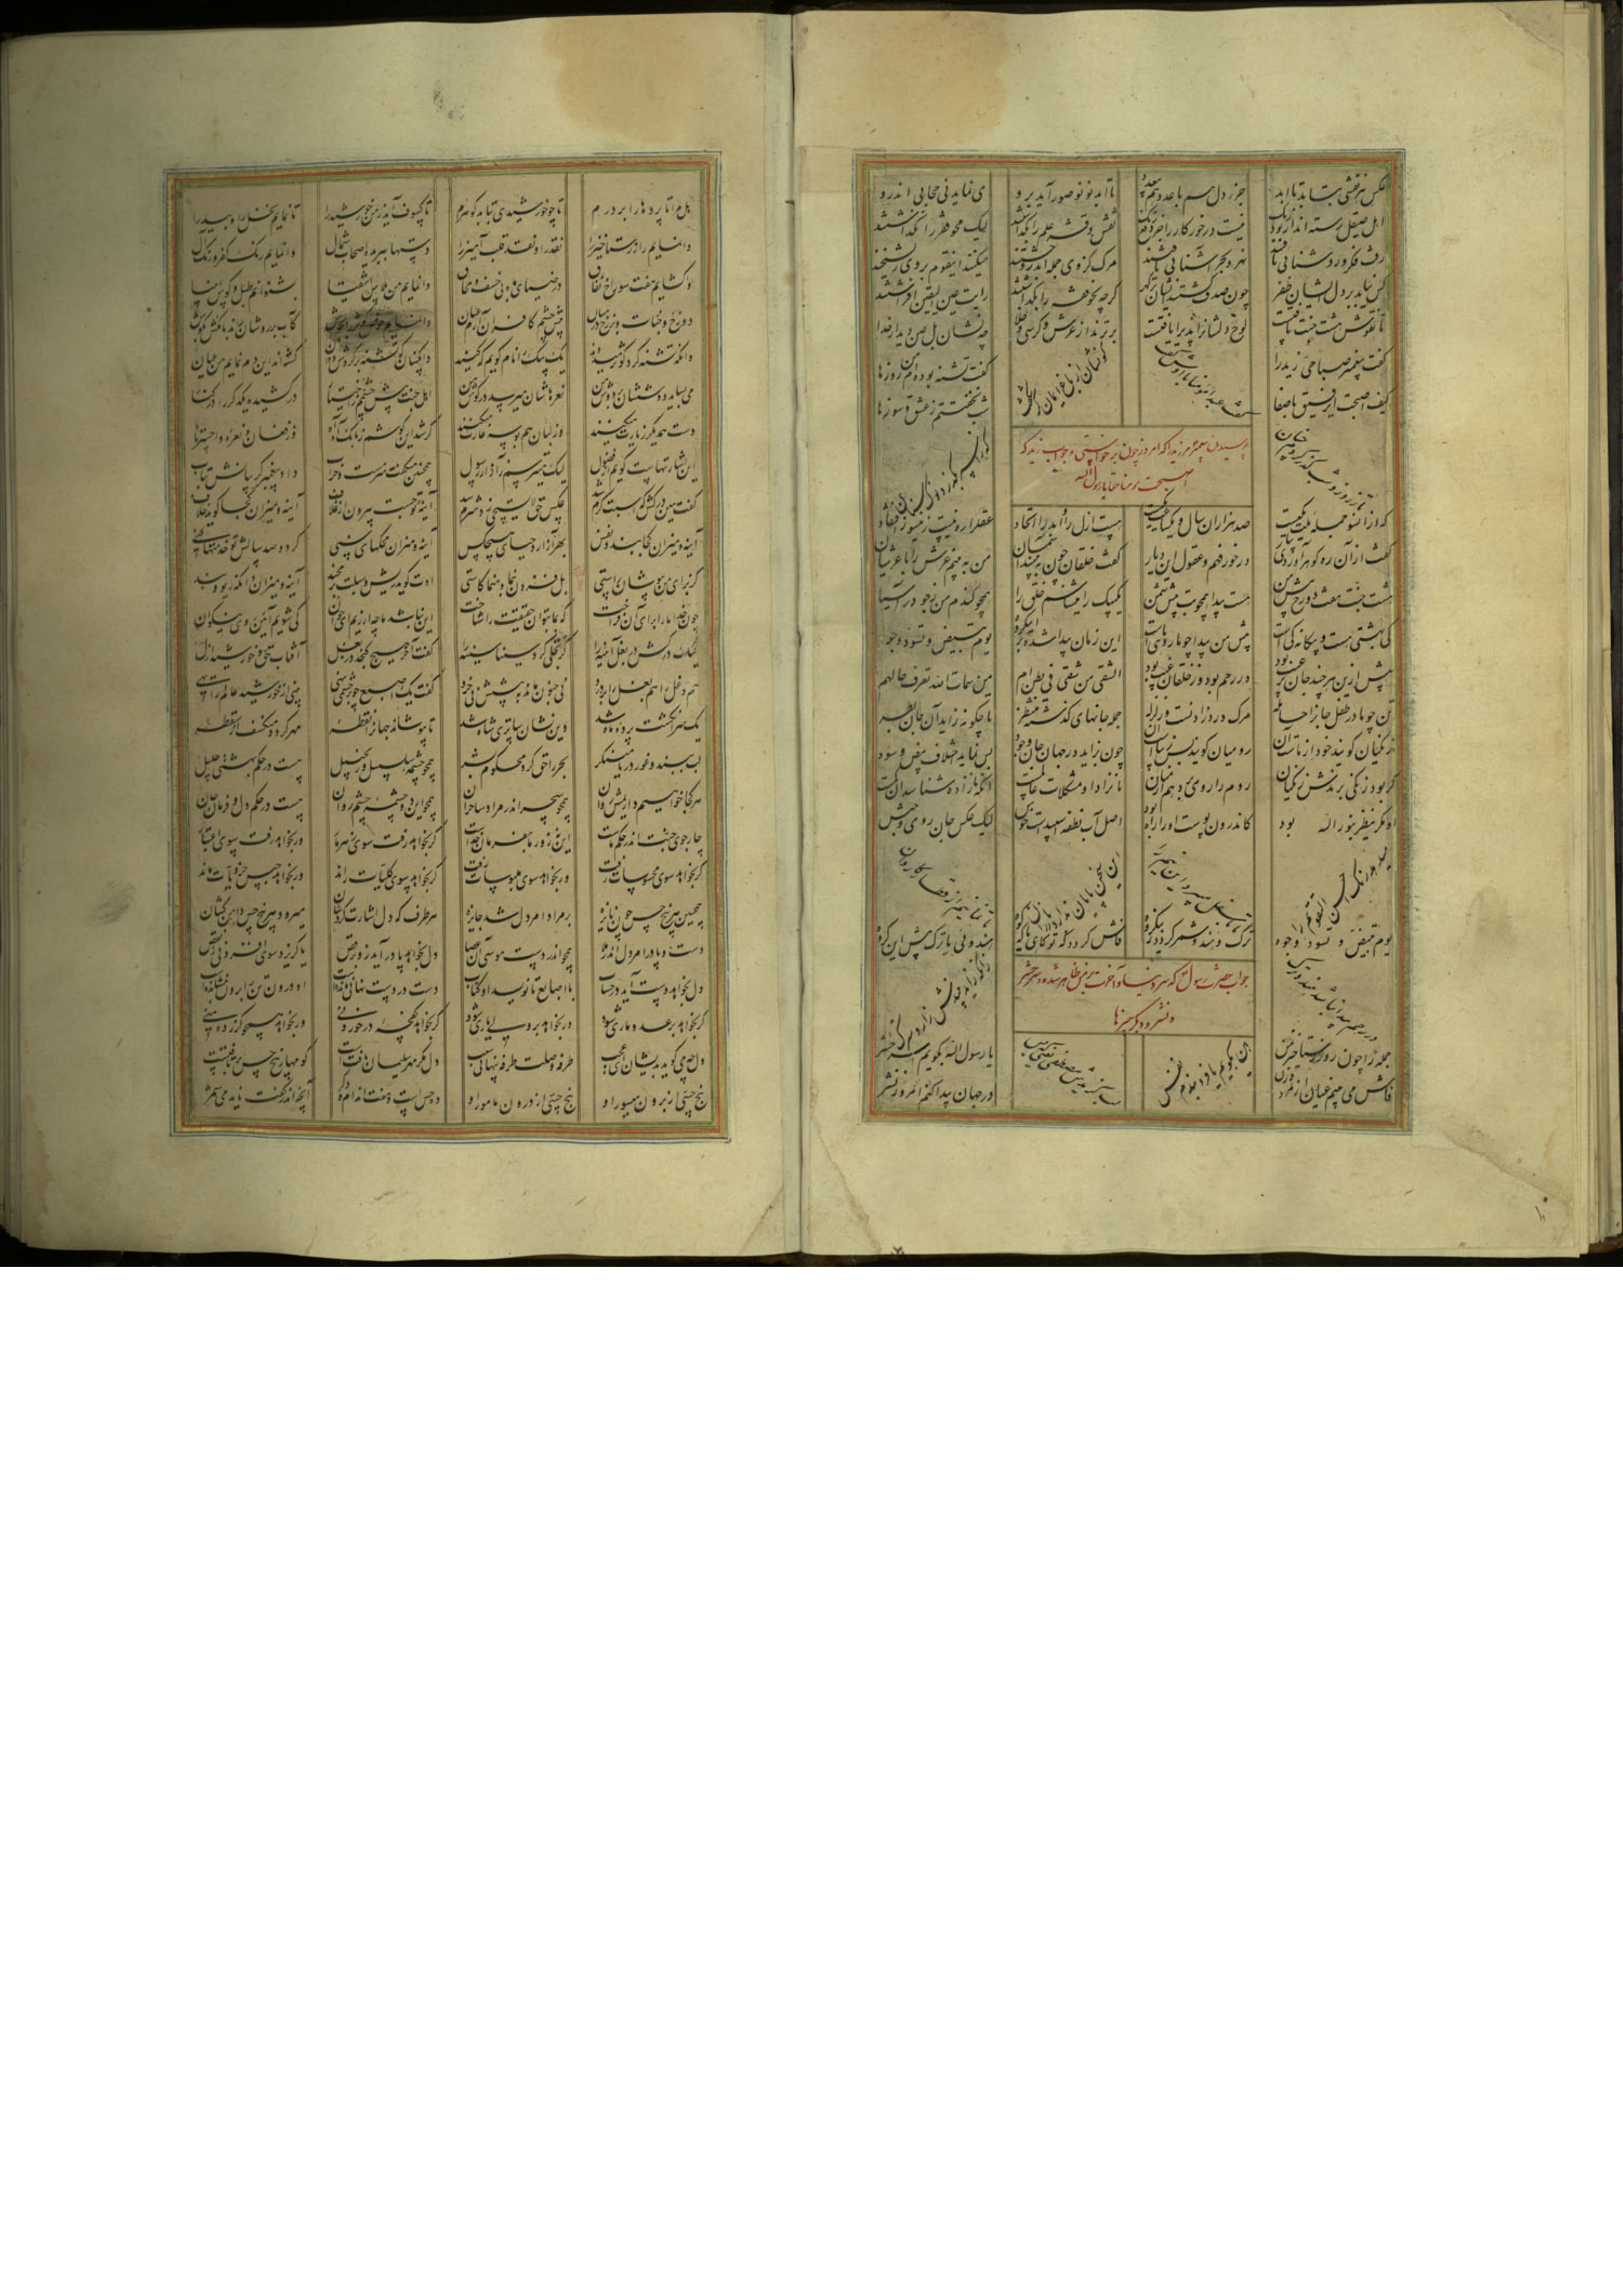 عکس هر نقشی نتابد تا ابد جز ز دل هم با عدد هم بی عدد تا ابد نو نو صور آید برو می نماید نی حجابی اندرو
اهل صیقل رسته اند از نقش و قشر علم را بگذاشتند
رفت فکر و روشنائی یافتند نحر و بحر آشنائی یافتند مرک کزوی جمله اندر وحشتند میکنند این قوم بر وی ریشخند
کس نیابد بر دل ایشان ظفر چون صدف کشتند ایشان پر کهر کرچه نحو و فقه را بکذاشتند رایت عین الیقین افراشتند
تا نقوش هشت جنت تافتست لوح دلشانرا پذیرا یافتست برترند از عرش و کرسی و خلا چه نشان بل عین دیدار خدا
کفت پیغمبر صباحی زید را کیف اصبحت ای رفیق با صفا
کو نشان از باغ ایمان کر شکفت
کفت تشنه بوده ام من روزها شب نخفتستم ز عشق و سوزها
پرسیدن پیغمبر مر زید را که امروز چون برخاستی و جواب زید که
اصبحت مومنا حقا یا رسول الله
که از آنسو جمله ملت یکیست صد هزاران سال و یکساعت یکیست هست ازل را و ابد را اتحاد عقل را ره نیست زانسو ز افتقاد
کفت از آن ره کو ره آوردی بیار در خور فهم و عقول این دیار کفت خلقان چون ببینند آسمان من ببینم عرش را با عرشیان
هشت جنت هفت دوزخ پیش من هست پیدا همچو بت پیش شمن یک بیک را میشناسم خلق را همچو کندم من ز جو در آسیا
که بهشتی کیست و بیکانه کی است پیش من پیدا چو مار و ماهی است این زمان پیدا شده بر این کروه یوم تبیض و تسود وجوه
پیش ازین هر چند جان پر عیب بود در رحم بود و ز خلقان غیب بود الشقی من شقی فی بطن ام من سمات الله تعرف حالهم
تن چو مادر طفل جانرا حامله مرک درد زادنست و زلزله جمله جانهای کذشته منتظر تا چکونه زاید آن جان بطر
زنکیان کویند خود از ماست آن رومیان کویند بس زیباست آن چون بزاید در جهان جان و جود پس نماند اختلاف بیض و سود
کر بود زنکی برندش زنکیان روم را رومی برد هم از میان تا نزاد او مشکلات عالمست آنکه نازاده شناسد آن کمست
او مکر ینظر بنور الله بود کاندرون پوست او را ره بود اصل آب نطفه اسپیدست و خوش لیک عکس جان رومی و حبش
این سخن پایان ندارد
یوم تبیض و تسود وجوه ترک و هندو شهره کردد زان کروه فاش کردد که تو کاهی یا که کوه هندوئی یا ترک پیش این کروه
جواب حضرت رسول که سر دنیا و آخرت بر من ظاهر شده و سر حشر
و نشر و دیکر چیزها
جمله را چون روز رستاخیز من فاش می بینم عیان از مرد و زن هین بکویم یا فرو بندم نفس
یا رسول الله بکویم سر حشر در جهان پیدا کنم امروز نشر
هل مرا تا پرده ها را بر درم تا چو خورشیدی بتابد کوهرم تا کسوف آید ز من خورشید را تا نمایم نخل را و بید را
وانمایم راز رستاخیز را نقد را و نقد قلب آمیز را دستها ببریده اصحاب شمال وانمایم رنک کفر و رنک آل
واکشایم هفت سوراخ نفاق در ضیای ماه بی خسف و محاق وانمایم من پلاس اشقیا بشنوانم طبل و کوس انبیا
دوزخ و جنات و برزخ در میان پیش چشم کافران آرم عیان وانمایم حوض کوثر را بجوش کآب بر روشان زند بانکش بکوش
وانکه تشنه کرد کوثر میدوند یک بیک را نام کویم که کیند کشته اند این دم نمایم من عیان
می بساید دوششان بر دوش من نعره هاشان میرسد در کوش من اهل جنت پیش چشمم ز اختیار در کشیده یکدکر را در کنار
دست همدیکر زیارت میکنند وز لبان هم بوسه غارت میکنند کر شد این کوشم ز بانک آه آه از فغان و نعره وا حسرتا
این اشارتهاست کویم از نغول لیک میترسم ز آزار رسول همچنین میکفت سرمست و خراب داد پیغمبر کریبانش بتاب
کفت هین درکش که اسبت کرم شد عکس حق لا یستحی زد شرم شد آینه تو جست بیرون از غلاف آینه و میزان کجا کوید خلاف
آینه و میزان کجا بندد نفس بهر آزار و حیای هیچکس آینه و میزان محکهای سنی کر دو صد سالش تو خدمتها کنی
کز برای من بپوشان راستی بل فزون بنما و منما کاستی اوت کوید ریش و سبلت بر مخند آینه و میزان و آنکه ریو و بند
چون خدا ما را برای آن فراخت که بما بتوان حقیقت را شناخت این نباشد ما چه ارزیم ای جوان کی شویم آئین روی نیکوان
لیک درکش در بغل آئینه را کر تجلی کرد سینا سینه را کفت آخر هیچ کنجد در بغل آفتاب حق و خورشید ازل
هم دغل را هم بغل را بر درد نی جنون ماند به پیشش نی خرد کفت یک اصبع چو بر چشمی نهی بینی از خورشید عالم را تهی
یک سر انکشت پرده ماه شد وین نشان ساتری شاه شد تا بپوشاند جهانرا نقطه مهر کردد منکسف از سقطه
لب ببند و غور دریا نکر بحر را حق کرد محکوم بشر همچو چشمه سلسبیل و زنجبیل هست در حکم بهشتی جلیل
چار جوی جنت اندر حکم ماست این نه زور ما بفرمان خداست
هر کجا خواهیم داریمش روان همچو سحر اندر مراد ساحران همچو این دو چشمه چشم روان هست در حکم دل و فرمان جان
کر بخواهد رفت سوی زهر و مار ور بخواهد رفت سوی اعتبار
کر بخواهد سوی محسوسات رفت ور بخواهد سوی ملبوسات رفت کر بخواهد سوی کلیات راند ور بخواهد حبس جزویات ماند
همچنین هر پنج حس چون نایزه بر مراد امر دل شد جایزه هر طرف که دل اشارت کردشان میرود هر پنج حس دامن کشان
دست و پا در امر دل اندر ملا همچو اندر دست موسی آن عصا دل بخواهد پا در آید زو برقص یا کریزد سوی افزونی ز نقص
دل بخواهد دست آید در حساب با اصابع تا نویسد او کتاب دست در دست نهانی مانده است او درون تن را برون بنشانده است
کر بخواهد بر عدو ماری شود ور بخواهد بر ولی یاری شود کر بخواهد کفچه در خوردنی ور بخواهد همچو کرز ده منی
دل چه میکوید بدیشان ای عجب طرفه وصلت طرفه پنهانی سبب دل مکر مهر سلیمان یافتست کو مهار پنج حس بر تافتست
پنج حسی از برون میسور او پنج حسی از درون مامور او ده حس است و هفت اندام دکر آنچه اندر کفت ناید می شمر